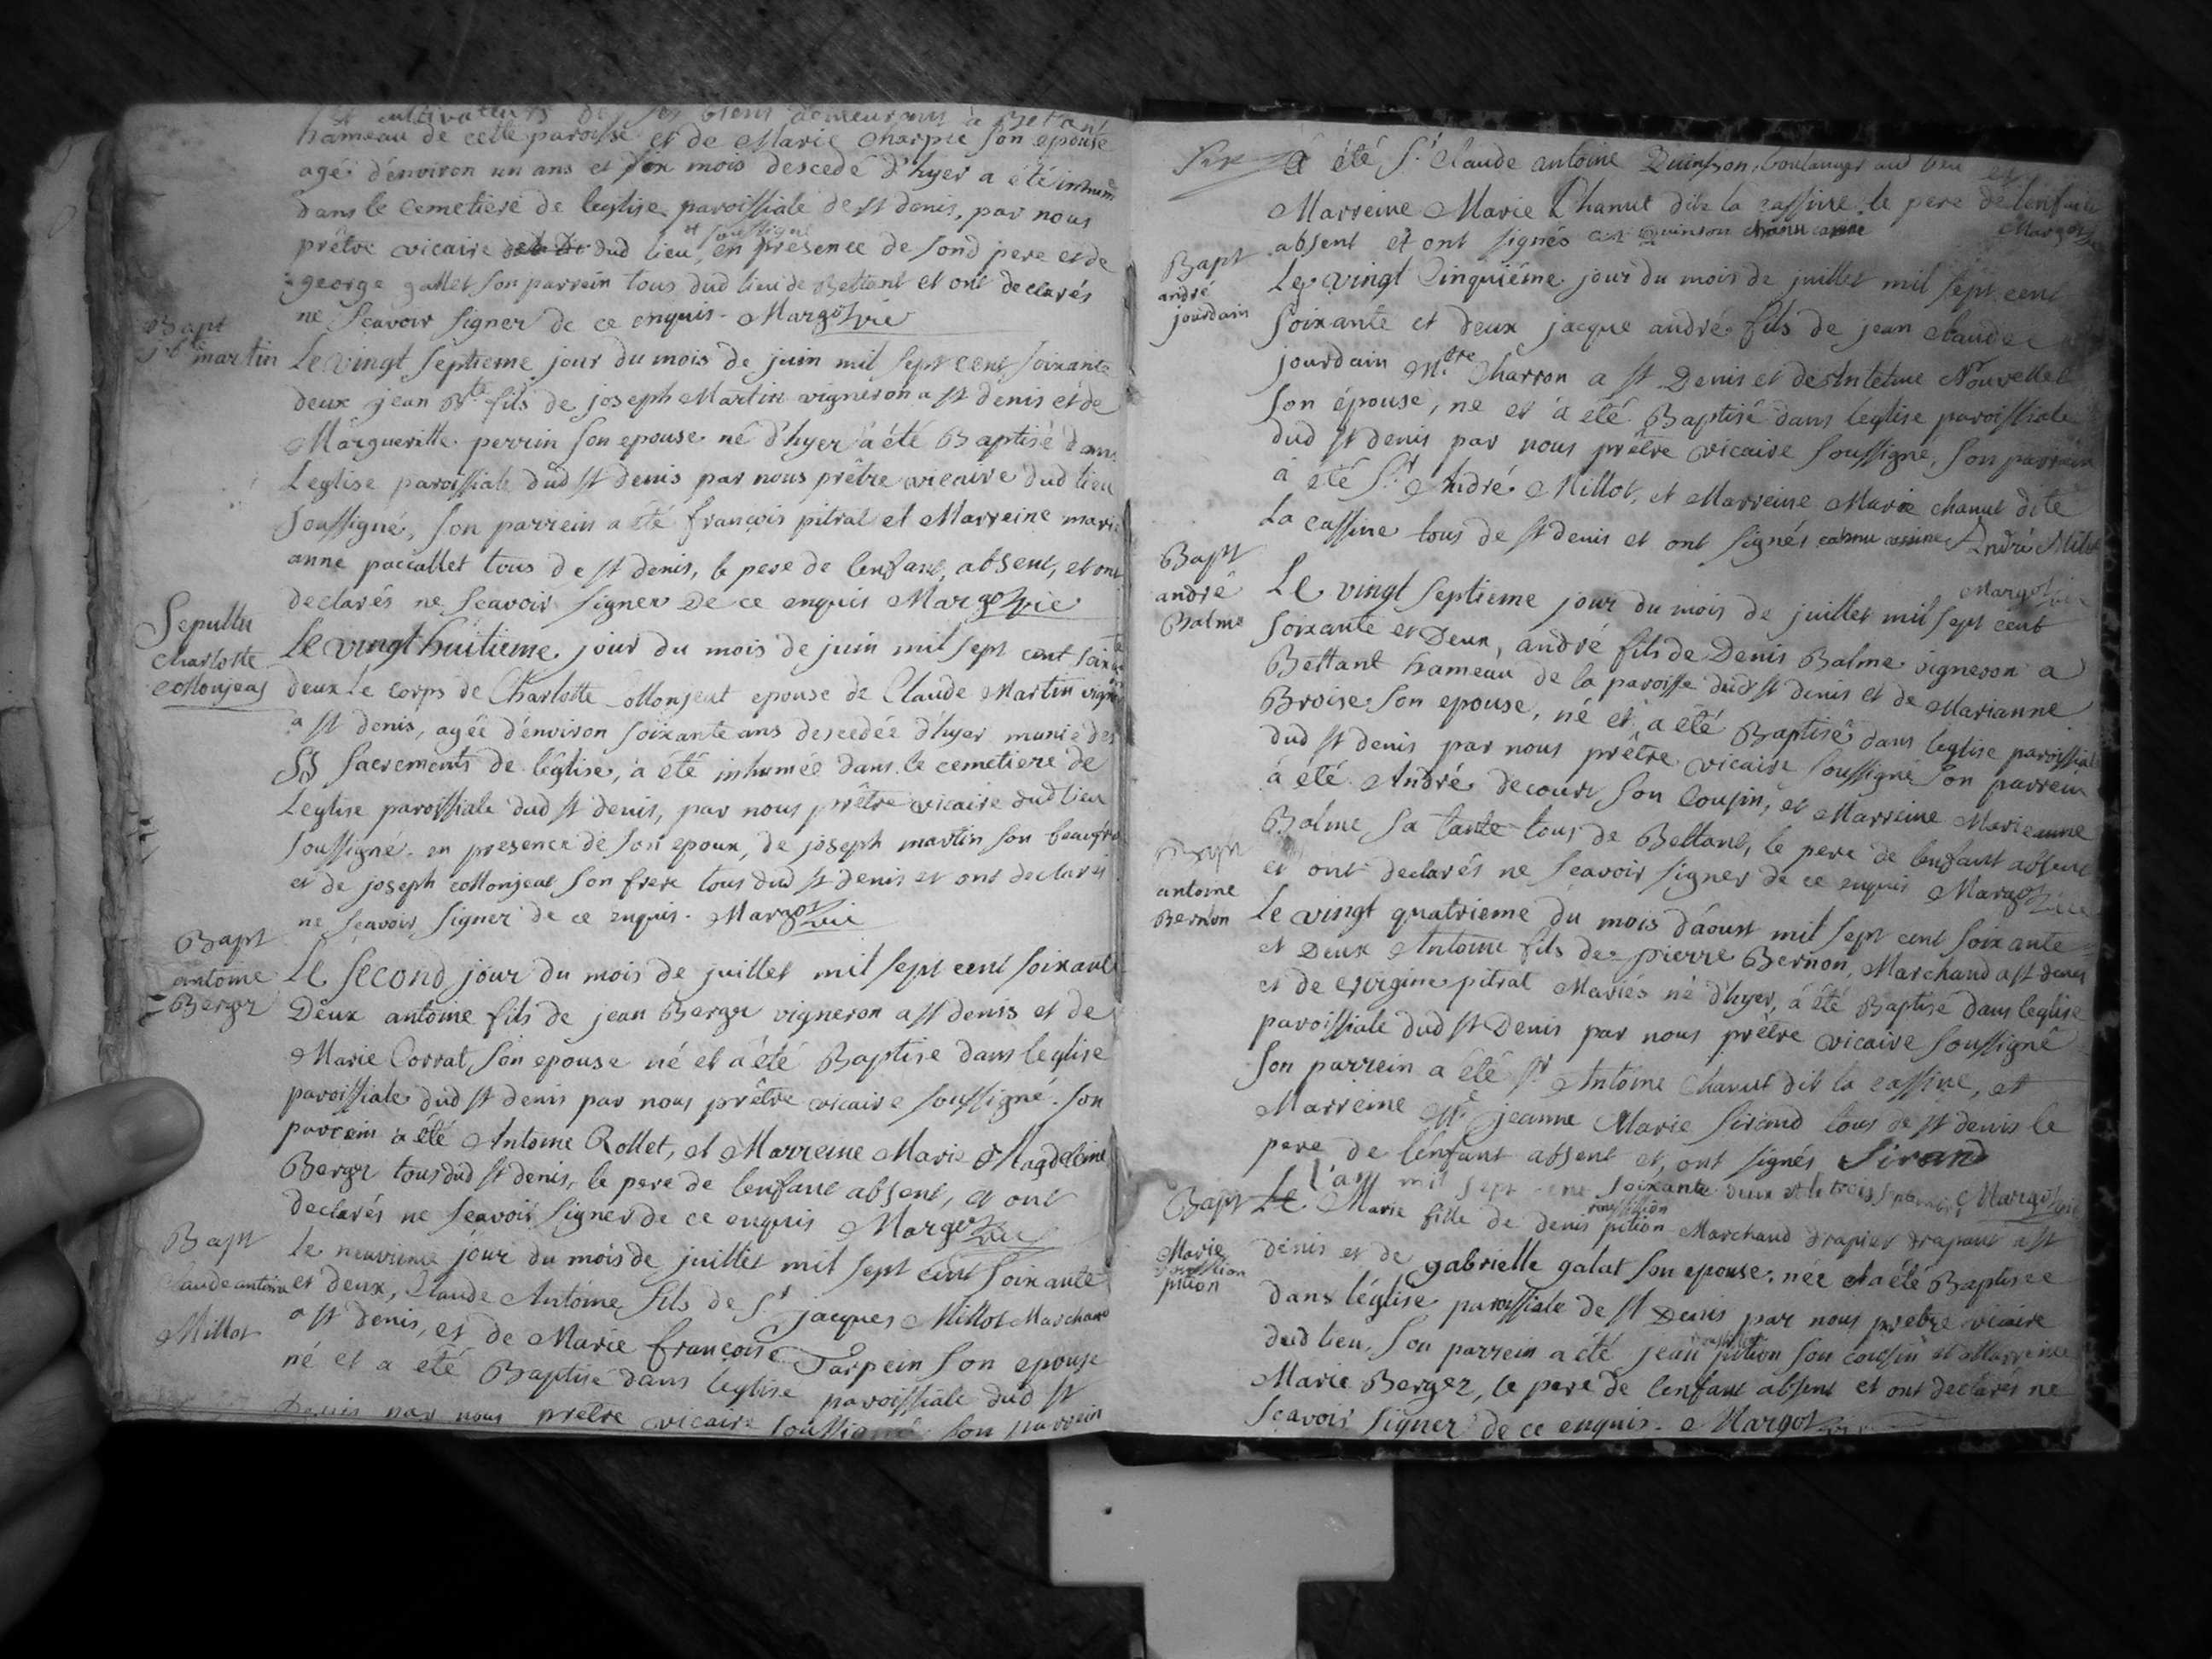 cultivateurs de ses biens demeurant à Bettant
hameau de cette paroisse et de Marie Charpie son epouse
agé d'environ un ans et mois descedé d'hyer a été inhumé
dans le cemetiere de leglise paroissiale de st denis, par nous
prêtre vicaire dud lieu, et soussigné en présence de sond pere et de
george gallet son parrein tous dud lieu de Bettant et ont declarés
ne scavoir signer de ce enquis. Margot vic
Bapt
martin
Le vingt septieme jour du mois de juin mil sept cent soixante
deux jean Bte fils de joseph Martin vigneron a st denis et de
Margueritte perrin son epouse né d'hyer a été Baptisé dans
Leglise paroissiale dud st denis par nous prêtre vicaire dud lieu
soussigné, son parrein a été françois pitrat et Marreine marie
anne paccallet tous de st denis, le pere de lenfant, absent, et ont
declarés ne scavoir signer De ce enquis Margot vic
Sepultu
charlotte
collonjeas
Le vingt huitieme jour du mois de juin mil sept cent soixante
deux Le corps de Charlotte collonjeat epouse de Claude Martin vigneron
a st denis, agée d'environ soixante ans descedée d'hyer munie des
SS sacrements de léglise, a été inhumée dans le cemetiere de
Leglise paroissiale dud st denis, par nous prêtre vicaire dud lieu
soussigné. en presence de son epoux, de joseph martin son beaufrere
et de joseph collonjeat son frere tous dud st denis et ont declarés
ne scavoir signer de ce enquis. Margot vic
Bapt
antoine
Berger
Le second jour du mois de juillet mil sept cent soixante
Deux antoine fils de jean Berger vigneron a st denis et de
Marie Corrat son epouse né et a été Baptisé dans leglise
paroissiale dud st denis par nous prêtre vicaire soussigné. son
parrein a été Antoine Rollet, et Marreine Marie Magdeleine
Berger tous dud st denis, le pere de lenfant absent, et ont
declarés ne scavoir signer de ce enquis Margot vic
Bapt
Claude antoine
Millot
Le neuvieme jour du mois de juillet mil sept cent soixante
et deux, Claude Antoine fils de Sr jacques Millot Marchand
a st denis, et de Marie françoise Tarpein son epouse
né et a été Baptisé dans leglise paroissiale dud st
Denis par nous prêtre vicaire soussigné son parrein
a été Sr Claude antoine Quinson, boulanger aud lieu et
Marreine Marie Chanut dite la cassine le pere de lenfant
absent et ont signés Quinson chanu casine Margot
Bapt
andré
jourdain
Le vingt Cinquiéme jour du mois de juillet mil sept cent
soixante et deux jacque andré fils de jean claude
jourdain Mtre Charron a st Denis et Nouvellet
son épouse, ne et a été Baptisé dans leglise paroissiale
dud st denis par nous prêtre vicaire soussigné, son parrein
a été Sr André Millot, et Marreine Marie chanut dite
La cassine tous de st denis et ont signés cahnu casine André Milot
Margot vic
Bapt
andré
Balme
Le vingt septieme jour du mois de juillet mil sept cent
soixante et Deux, andré fils de Denis Balme vigneron a
Bettant hameau de la paroisse dud st denis et de Marianne
Broise son epouse, né et a été Baptisé dans leglise paroissiale
dud st denis par nous prêtre vicaire soussigné son parrein
a été André decourt son Cousin, et Marreine Marieanne
Balme sa tante tous de Bettant, le pere de lenfant absent
et ont declarés ne scavoir signer de ce enquis Margot vic
Bapt
antoine
Bernon
Le vingt quatrieme du mois d'aoust mil sept cent soixante
et Deux Antoine fils de pierre Bernon, Marchand a st denis
et de virgine pitrat Mariés né d'hyer, a été Baptisé dans leglise
paroissiale dud st Denis par nous prêtre vicaire soussigné
son parrein a été Sr Antoine Chanut dit la cassine, et
Marreine Mle jeanne Marie Sirand tous de st denis le
pere de l'énfant absent et, ont signés Sirand
Margot vic
Bapt
Marie
pition
Le L'an mil sept cent soixante deux et le trois septembre
Marie fille de denis pition Marchand drapier drapant a st
denis et de gabrielle galat son epouse, née et a été Baptisee
dans léglise paroissiale de st Denis par nous pretre vicaire
dud lieu, son parrein a été jean pition son cousin et Marreine
Marie Berger, le pere de lenfant absent et ont declarés ne
scavoir signer de ce enquis. Margot vic